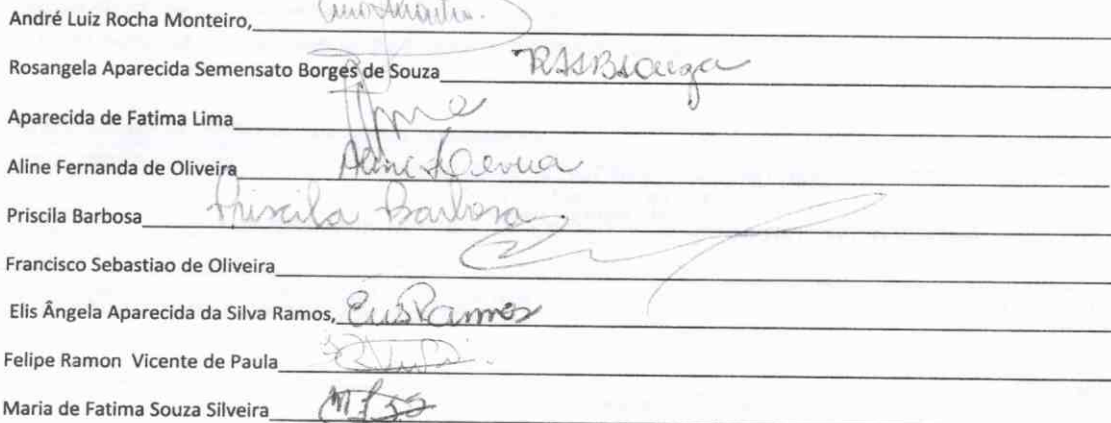 André Luiz Rocha Monteiro,
Rosangela Aparecida Semensato Borges de Souza RASBSouza
Aparecida de Fatima Lima
Aline Fernanda de Oliveira
Priscila Barbosa Priscila Barbosa
Francisco Sebastiao de Oliveira
Elis Ângela Aparecida da Silva Ramos, ElisRamos
Felipe Ramon Vicente de Paula
Maria de Fatima Souza Silveira